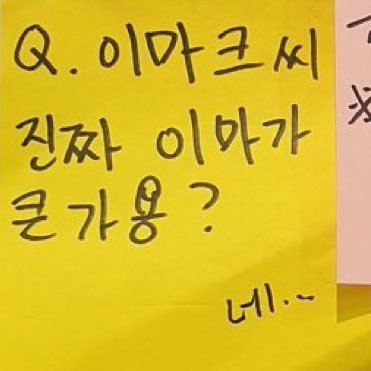 Q. 이마크씨
진짜 이마가
큰가용?
네.~